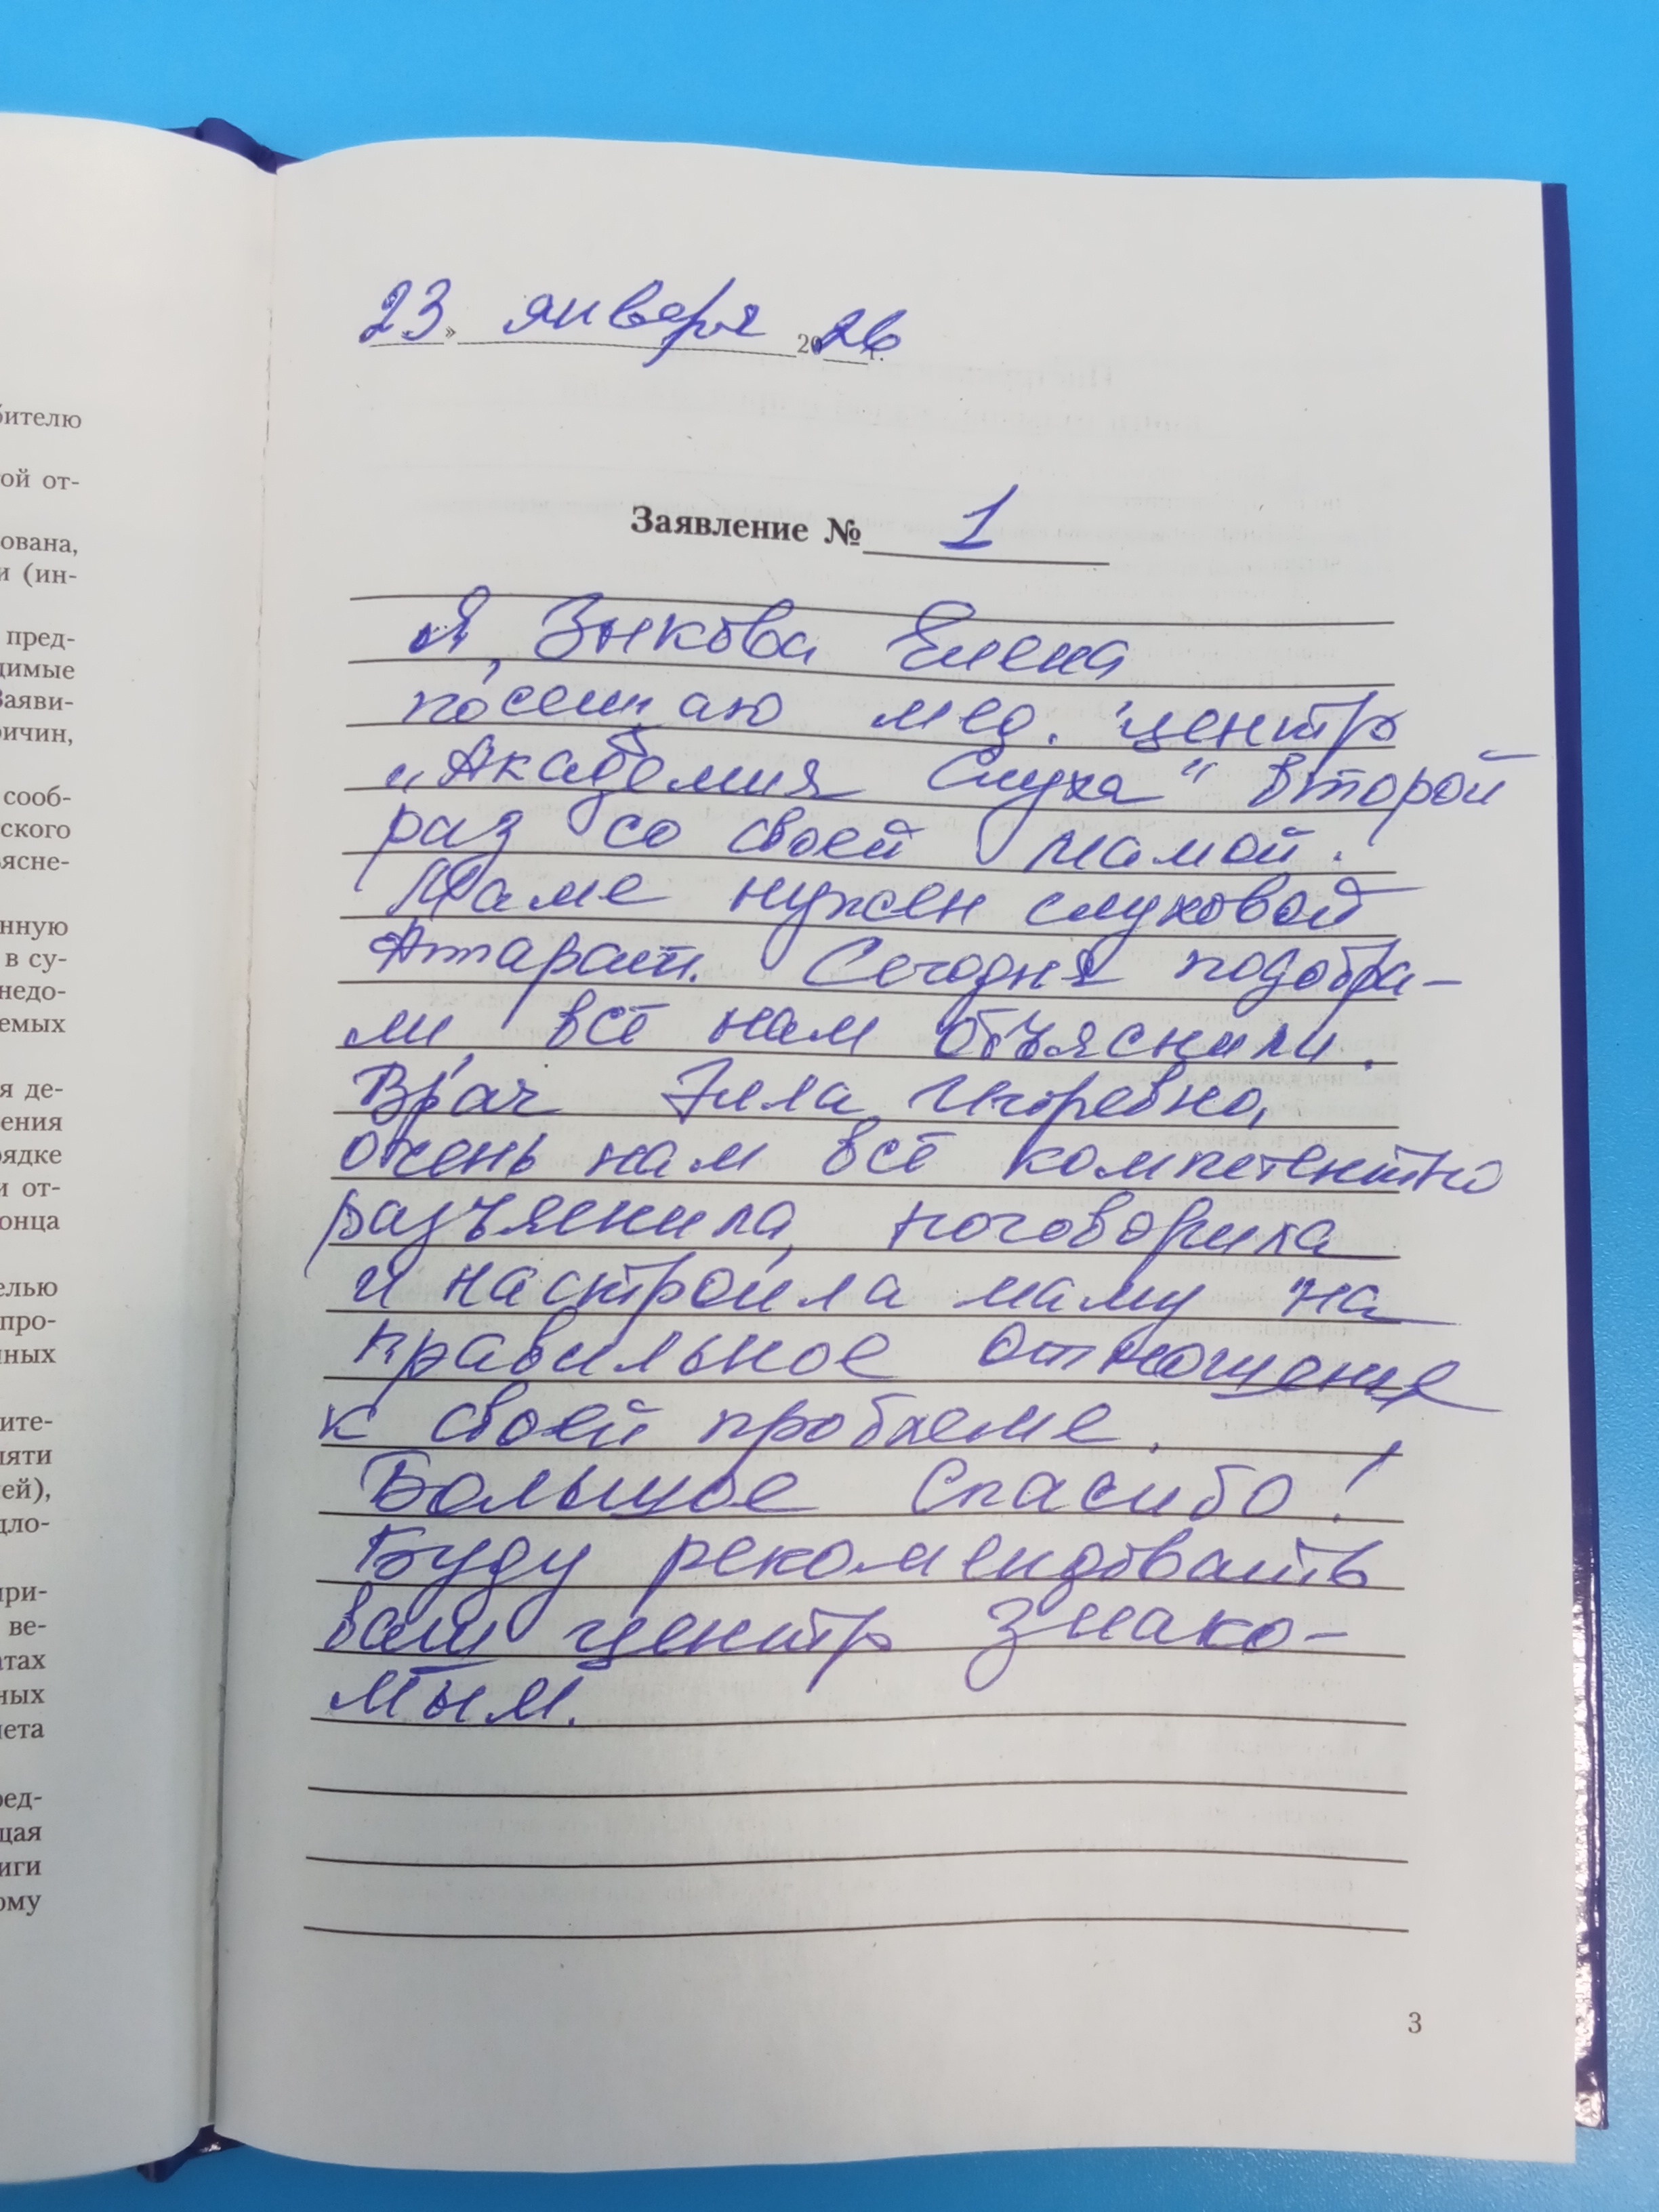 бителю
ой от-
ована,
и (ин-
пред-
димые
Заяви-
ричин,
сооб-
ского
ясне-
нную
в су-
недо-
емых
я де-
ения
рядке
и от-
онца
елью
про-
нных
ите-
мяти
ей),
дло-
при-
ве-
атах
ных
чета
ред-
щая
иги
ому
23 » января 2026 г.
Заявление № 1
Я, Зыкова Елена
посещаю мед. центр
"Академия Слуха" второй
раз со своей мамой.
Маме нужен слуховой
Аппарат. Сегодня подобра-
ли, всё нам объяснили.
Врач Элла Игоревна,
очень нам всё компетентно
разъяснила, поговорила
и настроила маму на
правильное отношение
к своей проблеме.
Большое Спасибо!
Буду рекомендовать
ваш центр знако-
мым.
3